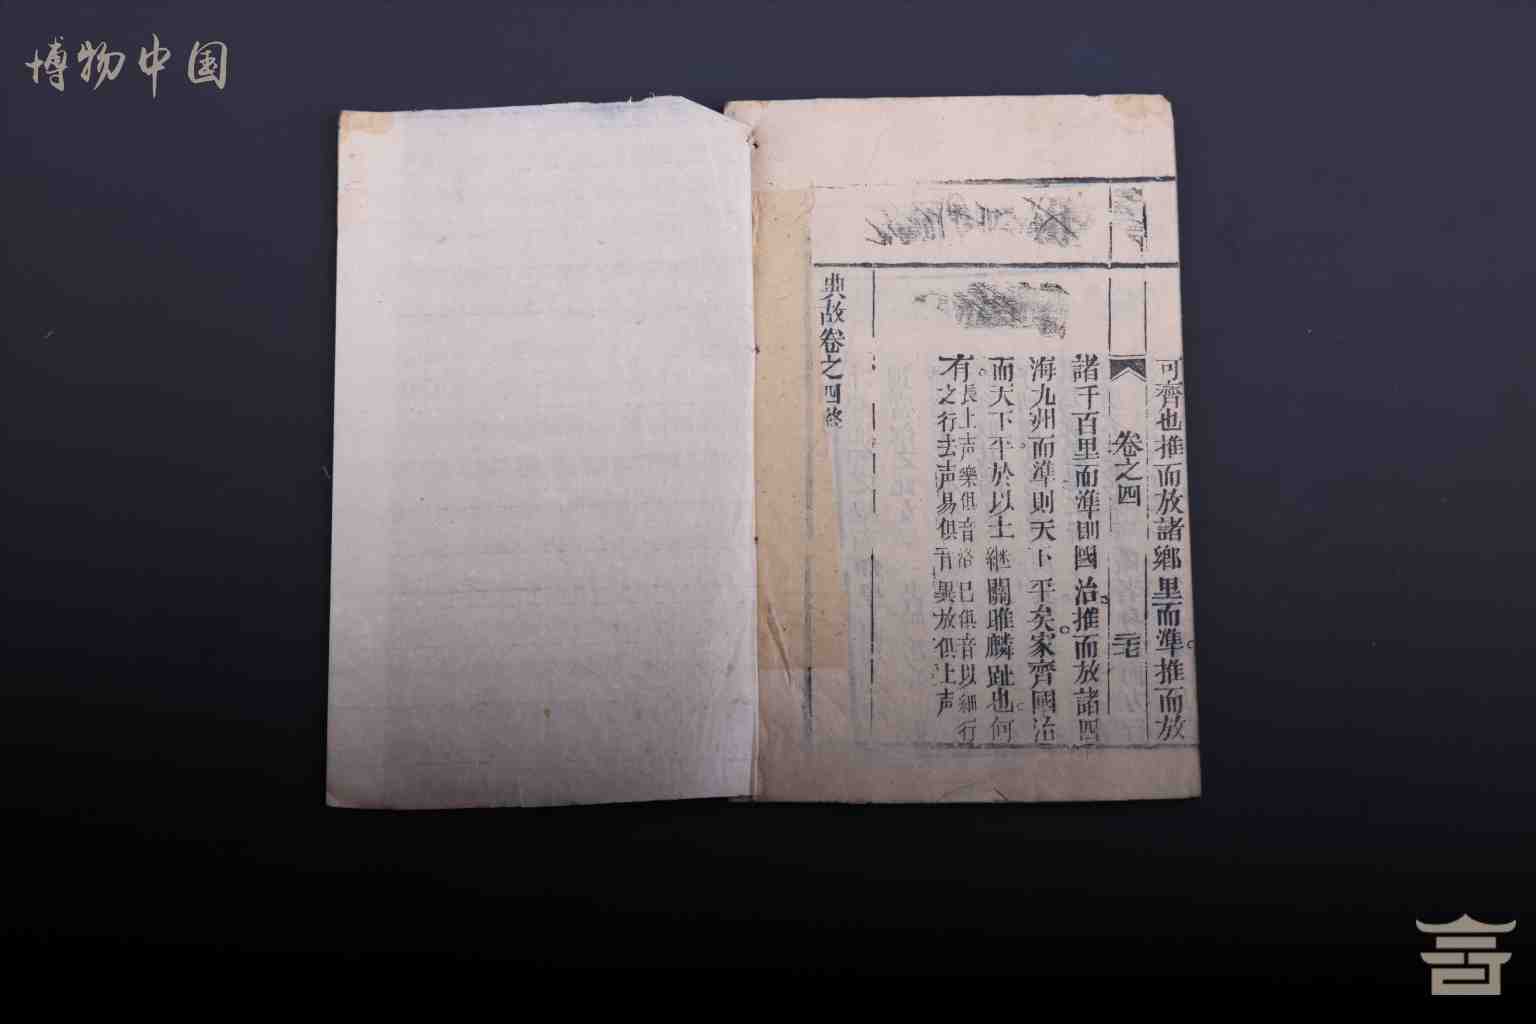 博物中国
可齊也推而放諸鄉里而準推而放
卷之四
三七
諸千百里而準則國治推而放諸四
海九州而準則天下平矣家齊國治
而天下平於以上繼關雎麟趾也何
有
長上声樂俱音洛已俱音以細行
之行去声易俱音異放俱上声
典故卷之四終